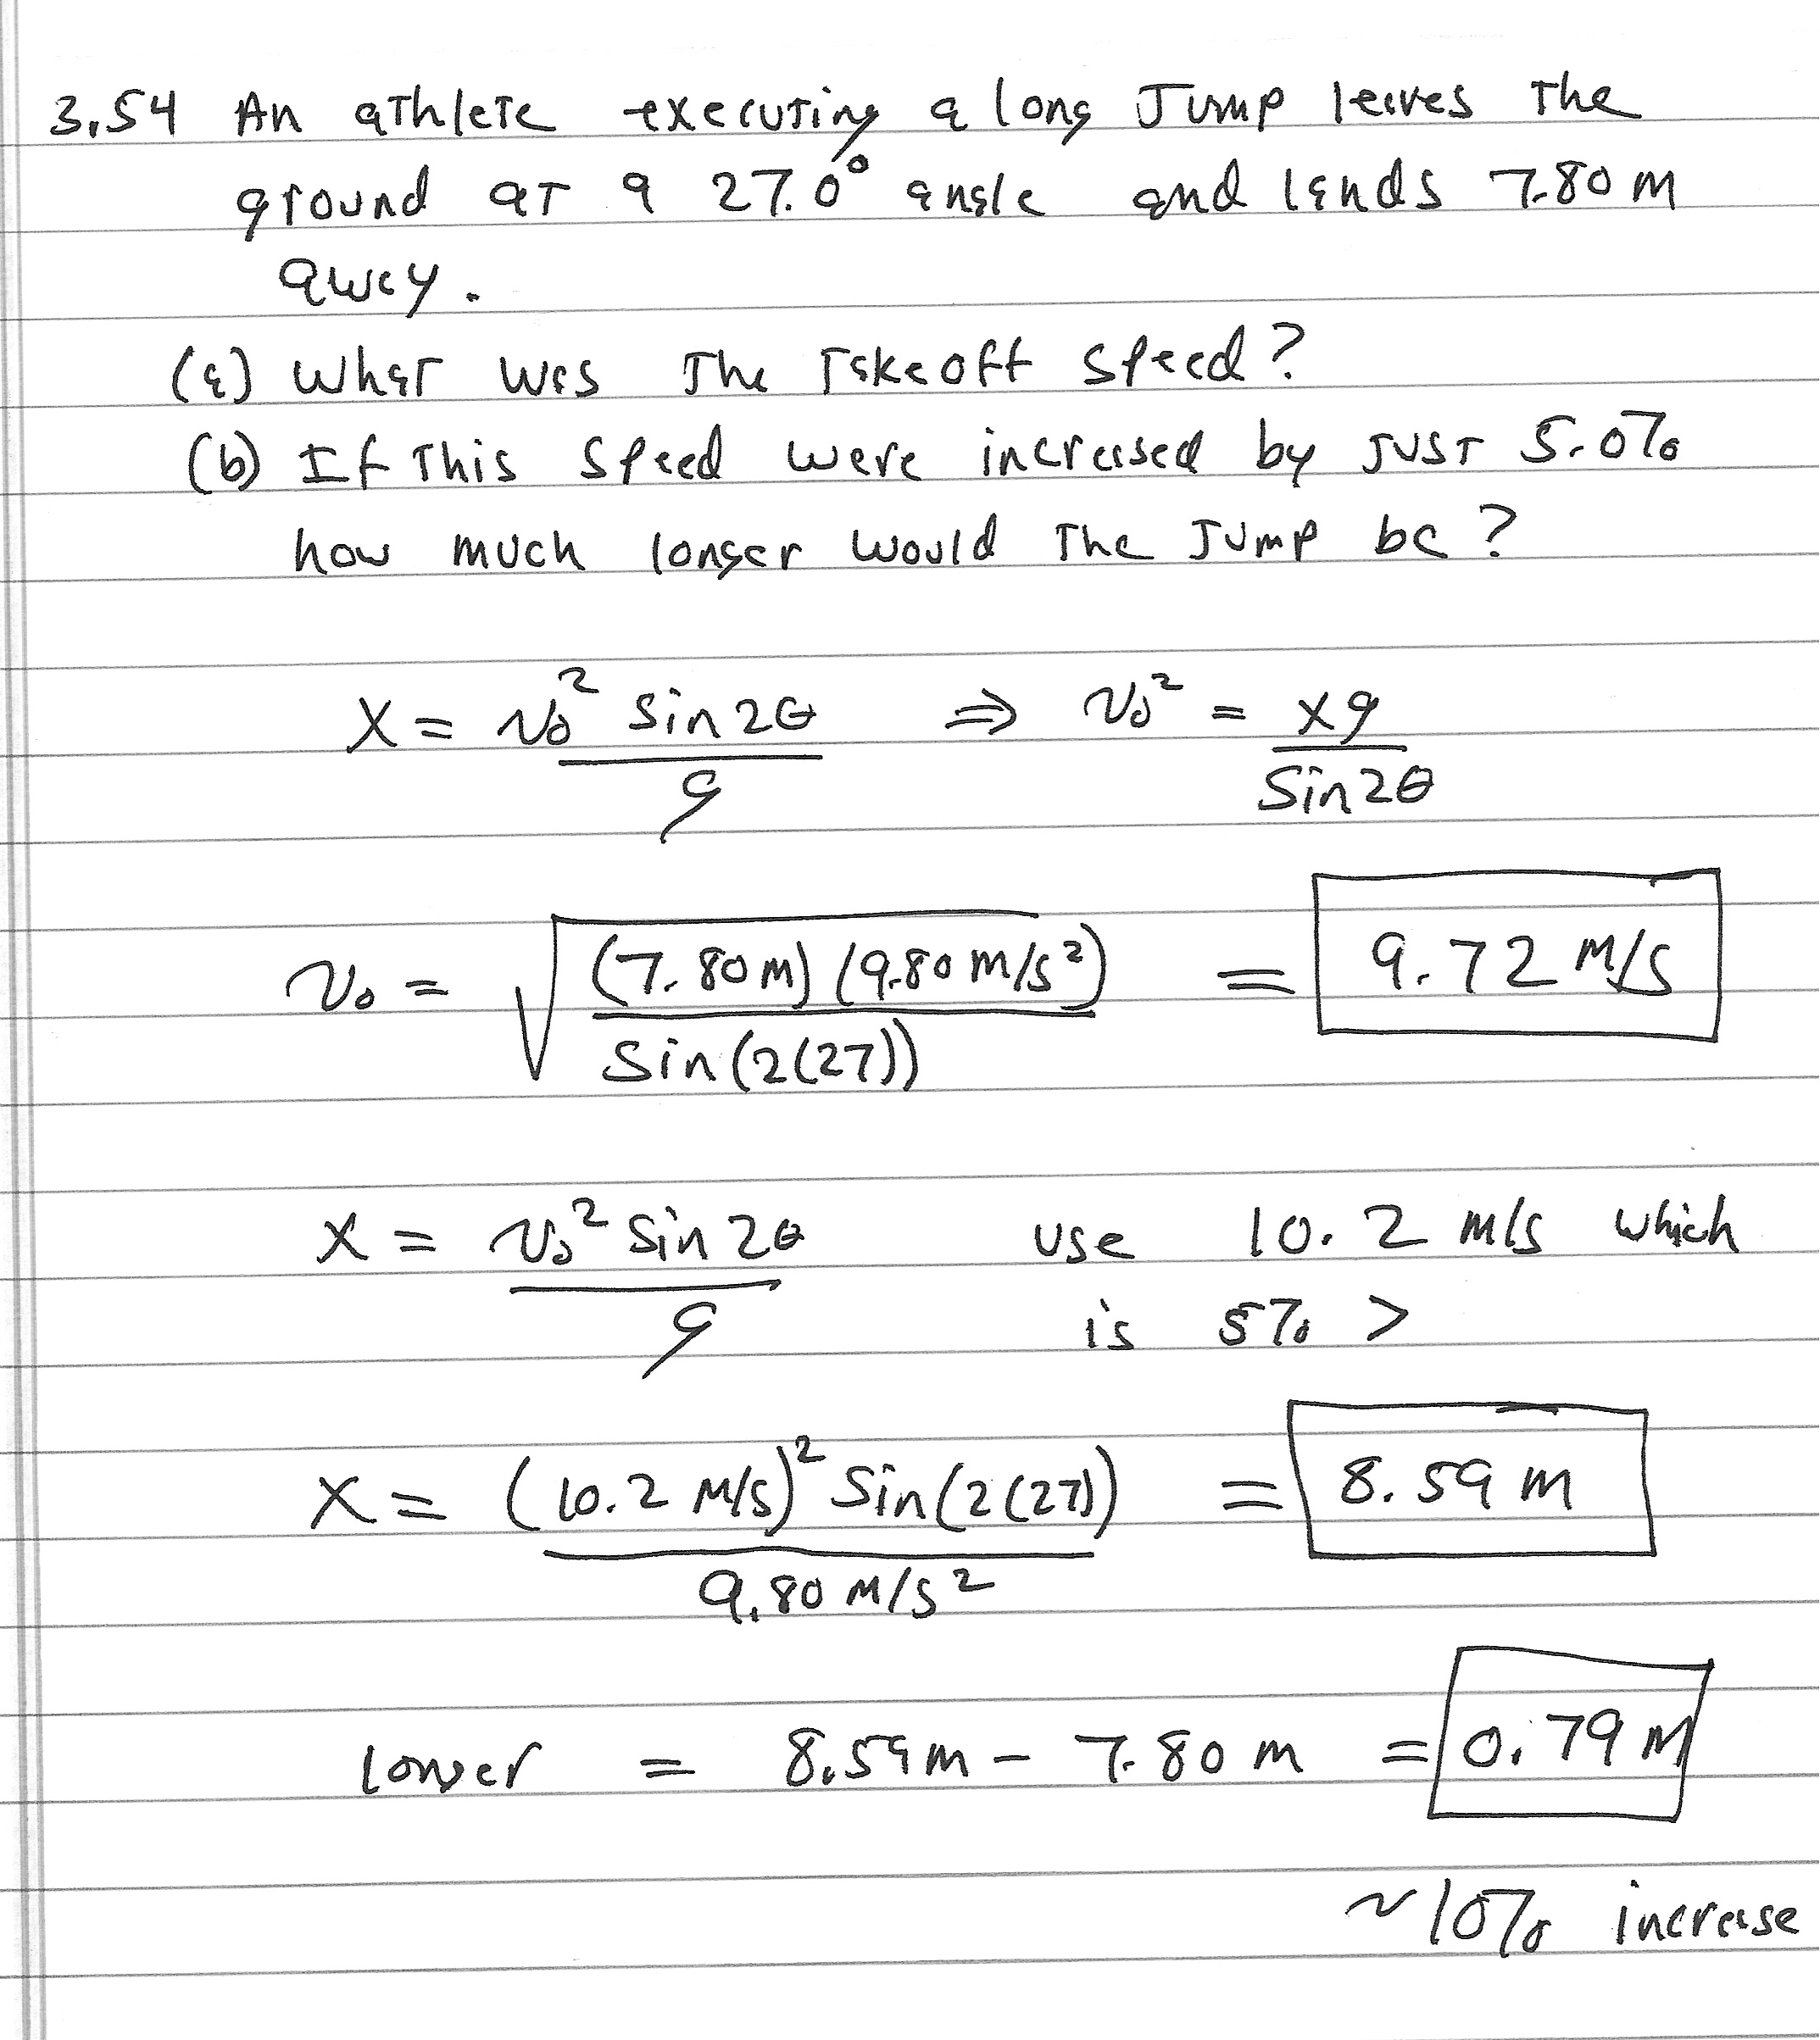 3.54 An athlete executing a long Jump leaves the
ground at a 27.0° angle and lands 7.80 m
away.
(a) What was The Takeoff speed?
(b) If This speed were increased by JUST 5.0%
how much longer would The Jump be?
X = v₀² sin 2θ / g ⇒ v₀² = xg / Sin 2θ
v₀ = √((7.80 m) (9.80 m/s²) / Sin(2(27))) = 9.72 m/s
X = v₀² Sin 2θ / g use 10.2 m/s which
is 5% >
X = (10.2 m/s)² Sin(2(27)) / 9.80 m/s² = 8.59 m
longer = 8.59 m - 7.80 m = 0.79 m
~10% increase